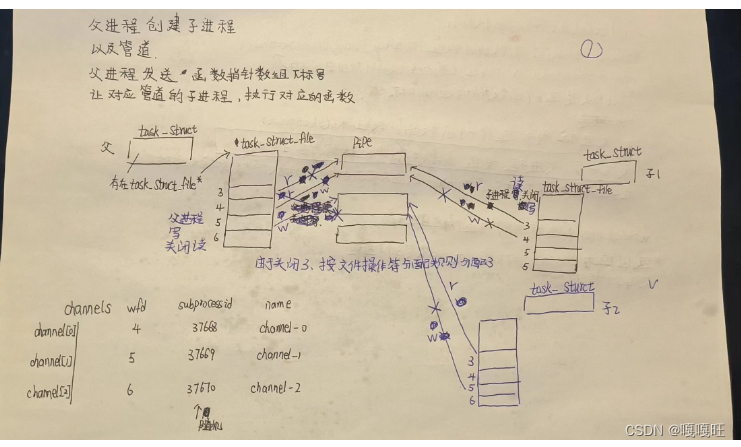 父进程创建子进程
以及管道.
父进程发送 函数指针数组下标号
让对应管道的子进程,执行对应的函数
①
父
task_struct
存在task_struct_file*
*task_struct_file
3
4
5
6
父进程
写
关闭读
r
w
r
w
PiPe
r
w
读
子进程 关闭
写
task_struct
子1
task_struct_file
3
4
5
5
由于关闭3、按文件操作符分配规则分配3
r
w
task_sturct
子2
3
4
5
6
channels wfd subprocessid name
channel[0] 4 37668 channel-0
channel[1] 5 37669 channel-1
channel[2] 6 37670 channel-2
CSDN @嘎嘎旺